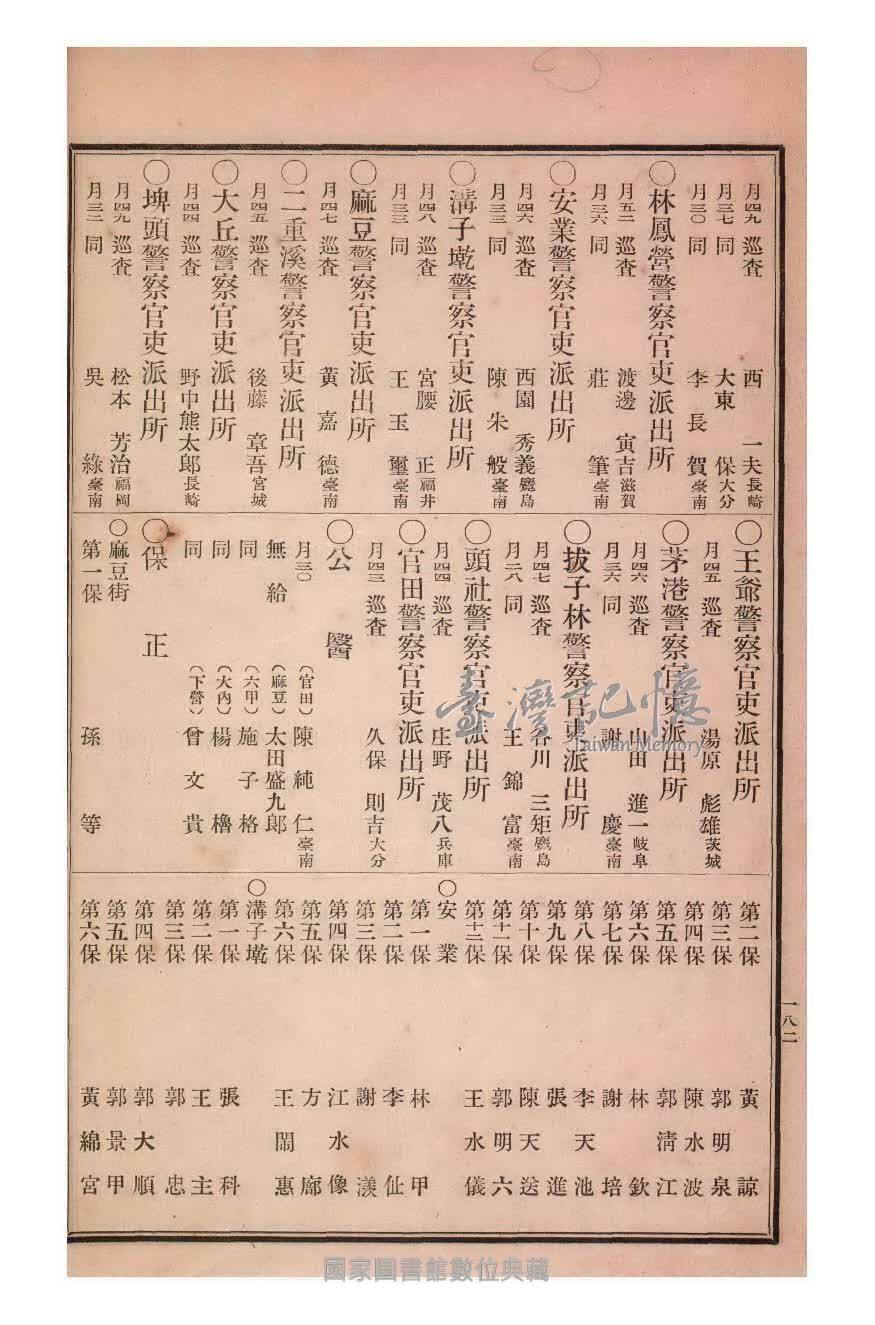 月四九 巡查 西 一夫 長崎
月三七 同 大東 保 大分
月三〇 同 李長賀 臺南
〇林鳳營警察官吏派出所
月五二 巡查 渡邊 寅吉 滋賀
月三六 同 莊 筆 臺南
〇安業警察官吏派出所
月四六 巡查 西園 秀義 鹿島
月三三 同 陳朱般 臺南
〇溝子墘警察官吏派出所
月四八 巡查 宮腰 正 福井
月三三 同 王玉璽 臺南
〇麻豆警察官吏派出所
月四七 巡查 黃嘉德 臺南
〇二重溪警察官吏派出所
月四五 巡查 後藤 章吾 宮城
〇大丘警察官吏派出所
月四四 巡查 野中熊太郎 長崎
〇埤頭警察官吏派出所
月四九 巡查 松本 芳治 福岡
月三二 同 吳 綠 臺南
〇王爺警察官吏派出所
月四五 巡查 湯原 彪雄 茨城
〇茅港警察官吏派出所
月四六 巡查 山田 進一 岐阜
月三六 同 謝 慶 臺南
〇拔子林警察官吏派出所
月四七 巡查 谷川 三矩 鹿島
月二八 同 王錦富 臺南
〇頭社警察官吏派出所
月四四 巡查 庄野 茂八 兵庫
〇官田警察官吏派出所
月四三 巡查 久保 則吉 大分
〇公醫
月三〇 (官田) 陳純仁 臺南
無給 (麻豆) 太田盛九郎
同 (六甲) 施子格
同 (大內) 楊 櫓
同 (下營) 曾文貴
〇保正
〇麻豆街
第一保 孫 等
第二保 黃 諒
第三保 郭明泉
第四保 陳水波
第五保 郭淸江
第六保 林 欽
第七保 謝 培
第八保 李天池
第九保 張 進
第十保 陳天送
第十一保 郭明六
第十二保 王水儀
〇安業
第一保 林 甲
第二保 李 仕
第三保 謝 渼
第四保 江水像
第五保 方 廊
第六保 王閙惠
〇溝子墘
第一保 張 科
第二保 王 主
第三保 郭 忠
第四保 郭大順
第五保 郭景甲
第六保 黃綿宮
一八二
臺灣記憶
Taiwan Memory
國家圖書館數位典藏